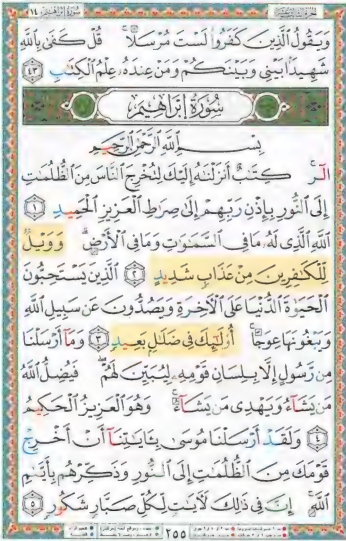 سُورَةُ إِبْرَاهِيمَ ١٤
وَيَقُولُ الَّذِينَ كَفَرُوا لَسْتَ مُرْسَلًا ۚ قُلْ كَفَىٰ بِاللَّهِ
شَهِيدًا بَيْنِي وَبَيْنَكُمْ وَمَنْ عِندَهُ عِلْمُ الْكِتَٰبِ ٤٣
سُورَةُ إِبْرَاهِيمَ
بِسْمِ اللَّهِ الرَّحْمَٰنِ الرَّحِيمِ
الٓر ۚ كِتَٰبٌ أَنزَلْنَٰهُ إِلَيْكَ لِتُخْرِجَ النَّاسَ مِنَ الظُّلُمَٰتِ
إِلَى النُّورِ بِإِذْنِ رَبِّهِمْ إِلَىٰ صِرَٰطِ الْعَزِيزِ الْحَمِيدِ ١
اللَّهِ الَّذِي لَهُ مَا فِي السَّمَٰوَٰتِ وَمَا فِي الْأَرْضِ ۗ وَوَيْلٌ
لِّلْكَٰفِرِينَ مِنْ عَذَابٍ شَدِيدٍ ٢ الَّذِينَ يَسْتَحِبُّونَ
الْحَيَوٰةَ الدُّنْيَا عَلَى الْآخِرَةِ وَيَصُدُّونَ عَن سَبِيلِ اللَّهِ
وَيَبْغُونَهَا عِوَجًا ۚ أُولَٰٓئِكَ فِي ضَلَٰلٍ بَعِيدٍ ٣ وَمَآ أَرْسَلْنَا
مِن رَّسُولٍ إِلَّا بِلِسَانِ قَوْمِهِ لِيُبَيِّنَ لَهُمْ ۖ فَيُضِلُّ اللَّهُ
مَن يَشَآءُ وَيَهْدِي مَن يَشَآءُ ۚ وَهُوَ الْعَزِيزُ الْحَكِيمُ
٤ وَلَقَدْ أَرْسَلْنَا مُوسَىٰ بِـَٔايَٰتِنَآ أَنْ أَخْرِجْ
قَوْمَكَ مِنَ الظُّلُمَٰتِ إِلَى النُّورِ وَذَكِّرْهُم بِأَيَّىٰمِ
اللَّهِ ۚ إِنَّ فِي ذَٰلِكَ لَآيَٰتٍ لِّكُلِّ صَبَّارٍ شَكُورٍ ٥
٢٥٥